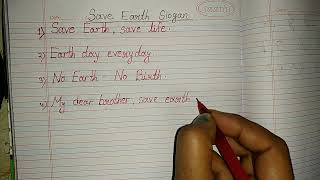 Save Earth Slogan
1) Save Earth, save life.
2) Earth day everyday
3) No Earth - No Birth.
4) My dear brother, save earth